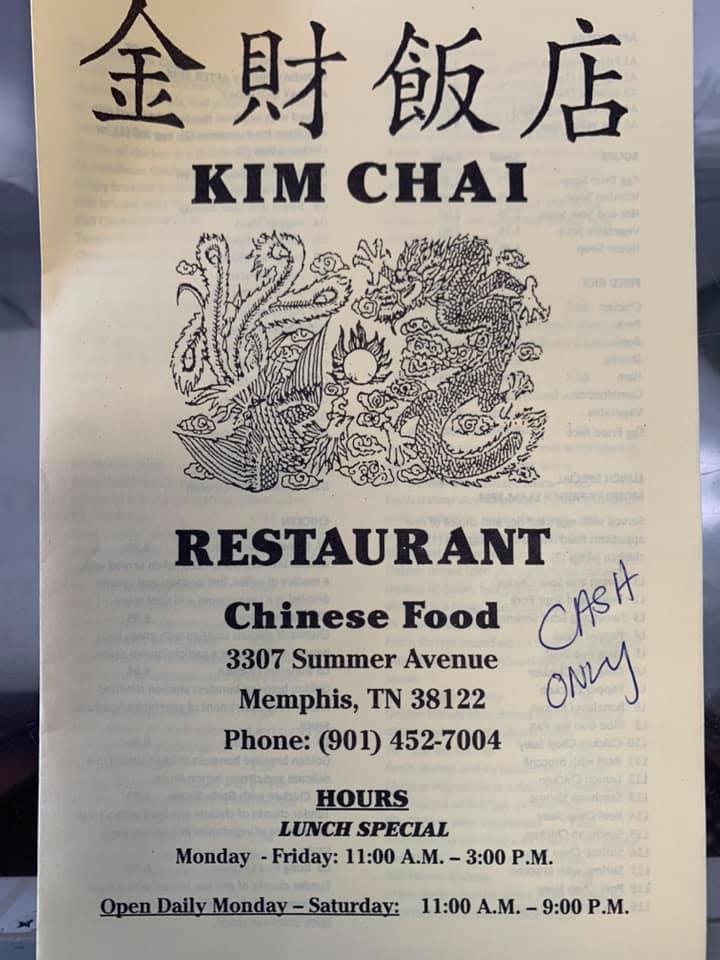 金財飯店
KIM CHAI
RESTAURANT
Chinese Food
3307 Summer Avenue
Memphis, TN 38122
Phone: (901) 452-7004
CASH
ONLY
HOURS
LUNCH SPECIAL
Monday - Friday: 11:00 A.M. – 3:00 P.M.
Open Daily Monday – Saturday: 11:00 A.M. – 9:00 P.M.